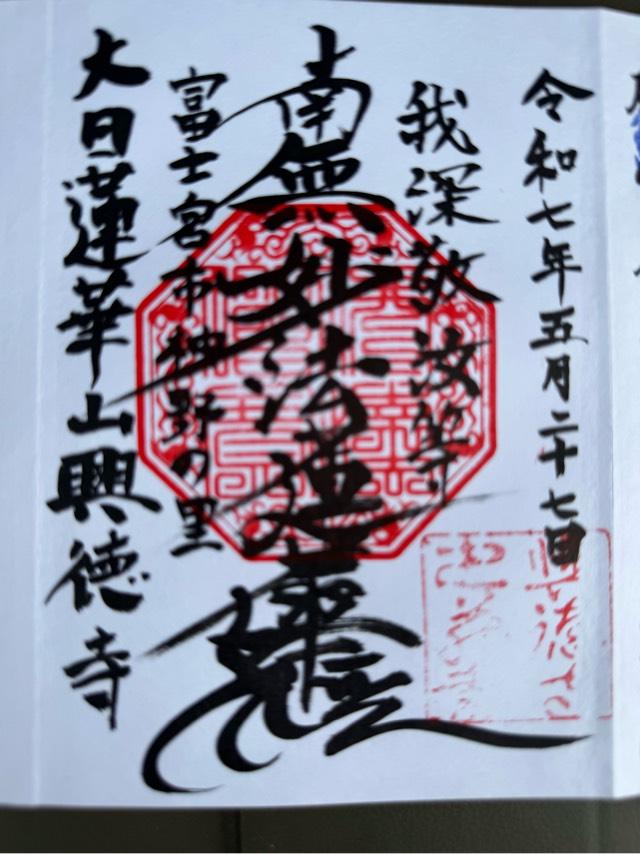 令和七年五月二十七日
我深敬汝等
南無妙法蓮華經
富士宮市神野の里
大日蓮華山興徳寺